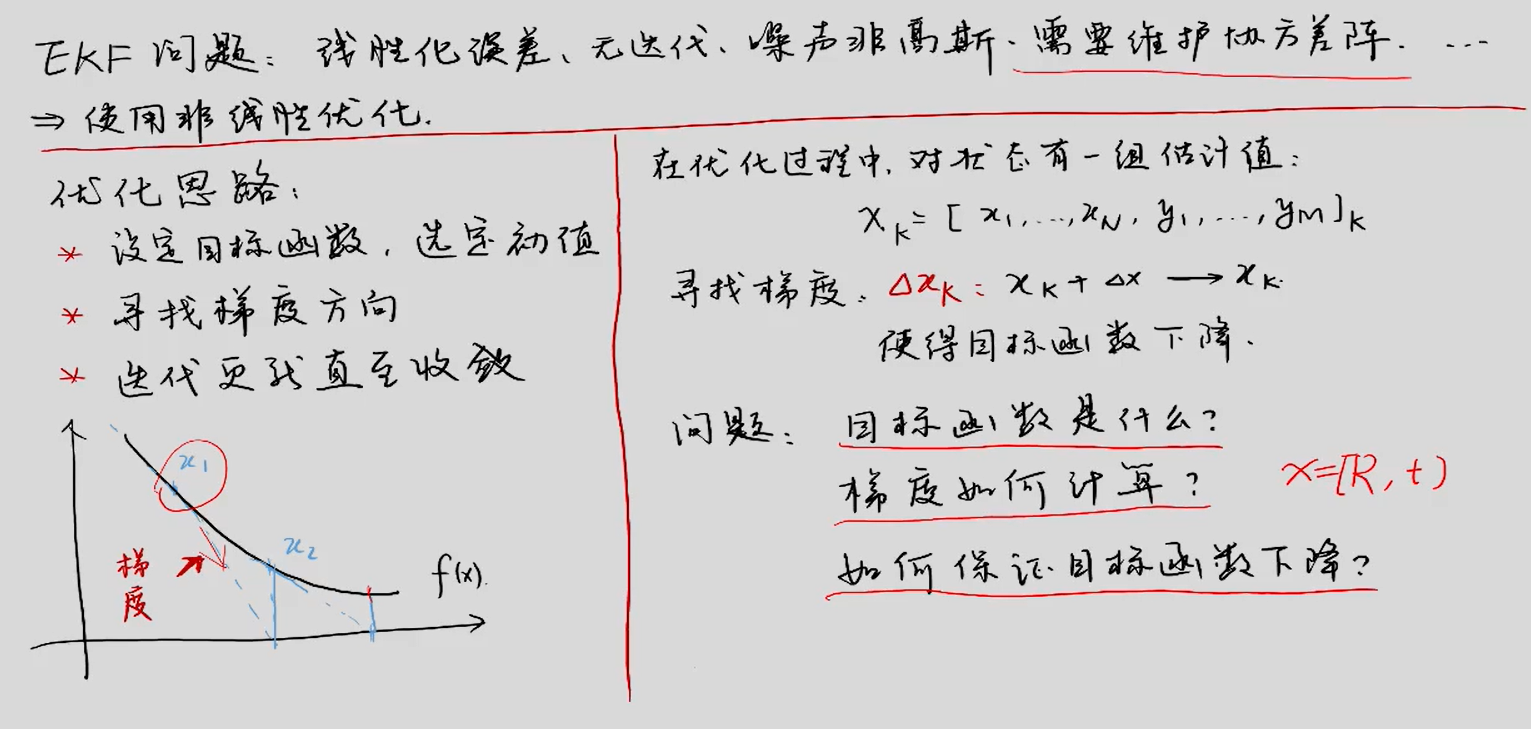 EKF 问题: 线性化误差、无迭代、噪声非高斯、需要维护协方差阵. ...
⇒ 使用非线性优化.
优化思路:
* 设定目标函数, 选定初值
* 寻找梯度方向
* 迭代更新直至收敛
x1
x2
梯度
f(x).
在优化过程中, 对状态有一组估计值:
x_k = [x_1, ..., x_N, y_1, ..., y_M]_k
寻找梯度. Δx_k: x_k + Δx → x_k.
使得目标函数下降.
问题: 目标函数是什么?
梯度如何计算? x=[R, t)
如何保证目标函数下降?